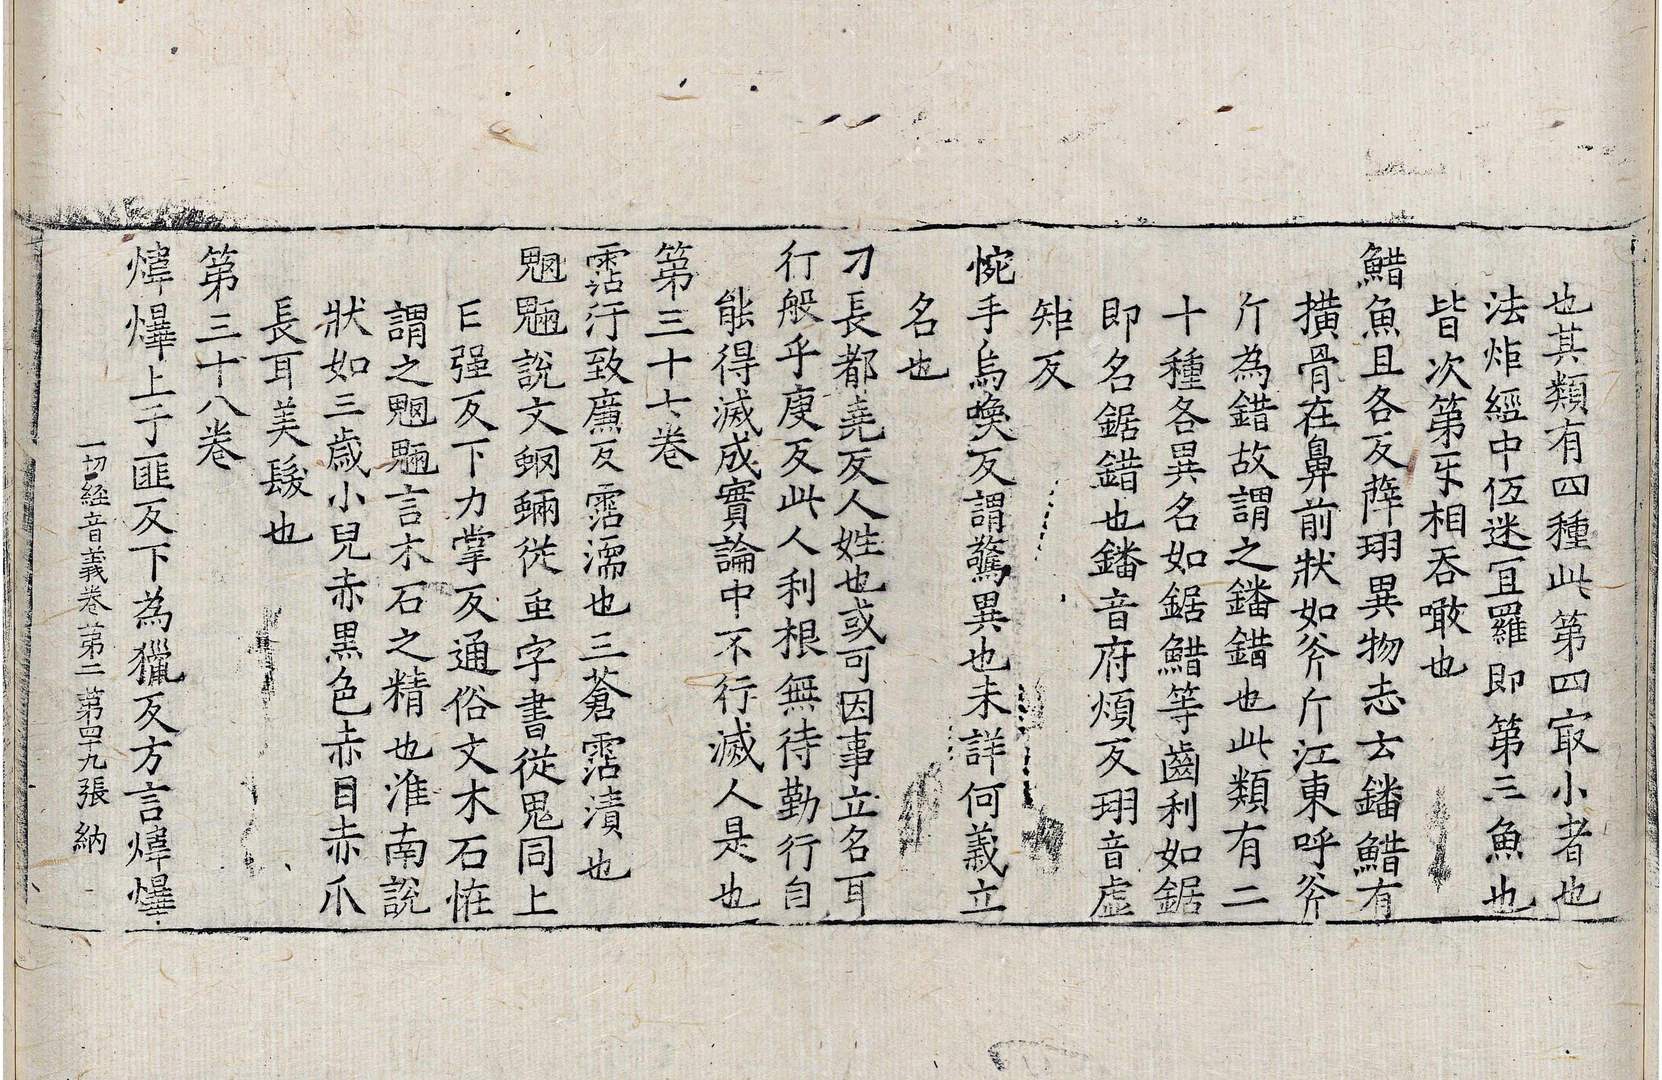 也其類有四種此第四㝡小者也
法炸經中伍迷冝羅即第三魚也
皆次第牙相吞噉也
䱜魚且各反薛珝異物志云鐇䱜有
撗骨在鼻前狀如斧斤江東呼斧
斤為錯故謂之鐇錯也此類有二
十種各異名如鋸䱜等齒利如鋸
即名鋸錯也鐇音府煩反珝音虛
矩反
惋手烏喚反謂驚異也未詳何義立
名也
刁長都堯反人姓也或可因事立名耳
行般乎庚反此人利根無待勤行自
能得滅成實論中不行滅人是也
第三十七卷
霑汙致廉反霑濡也三蒼霑漬也
魍魎說文蝄蜽從虫字書從鬼同上
亡强反下力掌反通俗文木石恠
謂之魍魎言木石之精也淮南說
狀如三歲小兒赤黑色赤目赤爪
長耳美髮也
第三十八卷
煒燁上于匪反下為獵反方言煒燁
一切經音義卷第二 第四十九張 納